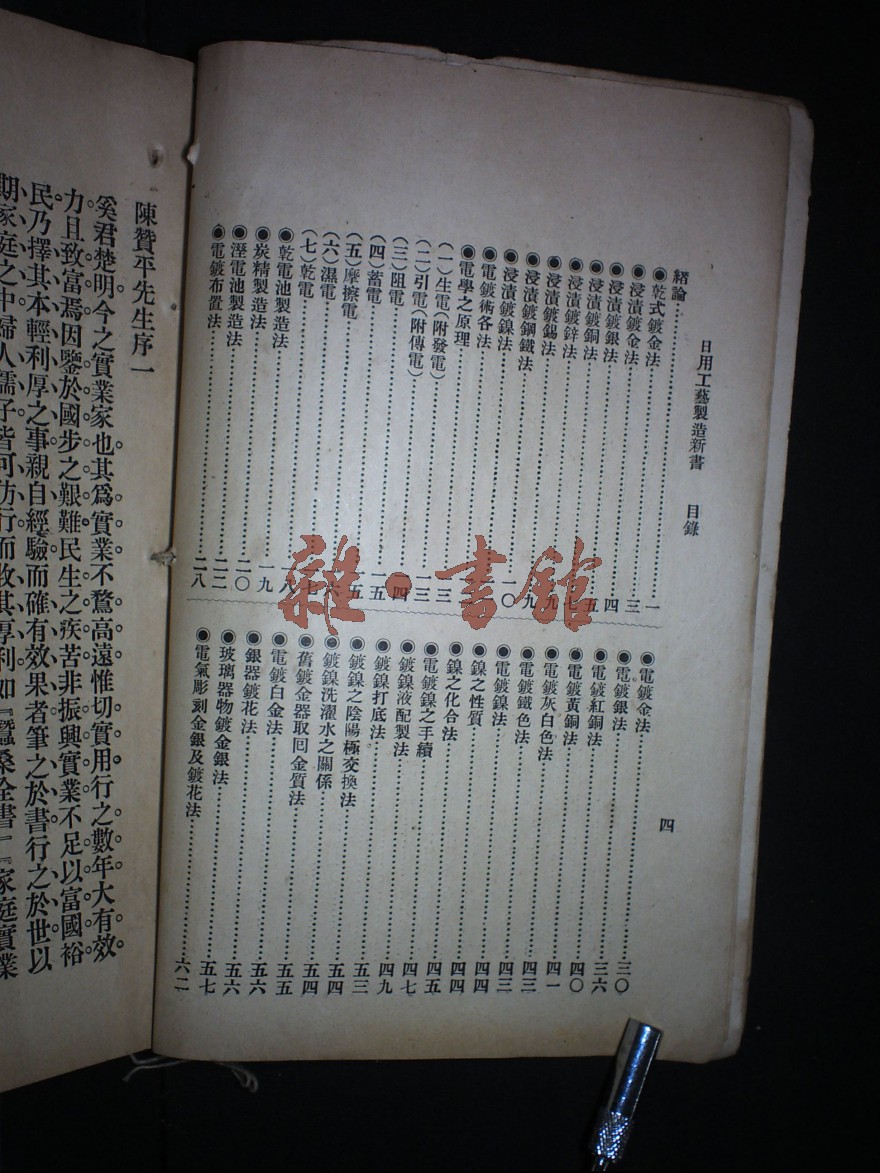 日用工藝製造新書 目錄 四
緒論……一
◉乾式鍍金法……三
◉浸漬鍍金法……四
◉浸漬鍍銀法……五
◉浸漬鍍銅法……七
◉浸漬鍍鋅法……九
◉浸漬鍍錫法……九
◉浸漬鍍鋼鐵法……一〇
◉浸漬鍍鎳法……
◉電鍍術各法……
◉電學之原理……一三
(一)生電(附發電)……一三
(二)引電(附傳電)……四
(三)阻電……一五
(四)蓄電……一五
(五)摩擦電……六
(六)濕電……七
(七)乾電……八
◉乾電池製造法……一九
◉炭精製造法……二〇
◉溼電池製造法……二二
◉電鍍布置法……二八
◉電鍍金法……三〇
◉電鍍銀法……三六
◉電鍍紅銅法……四〇
◉電鍍黃銅法……四一
◉電鍍灰白色法……四三
◉電鍍鐵色法……四三
◉電鍍鎳法……四四
◉鎳之性質……四四
◉鎳之化合法……四五
◉電鍍鎳之手續……四七
◉鍍鎳液配製法……四九
◉鍍鎳打底法……五三
◉鍍鎳之陰陽極交換法……五四
◉鍍鎳洗濯水之關係……五四
◉舊鍍金器取回金質法……五五
◉電鍍白金法……五六
◉銀器鍍花法……五六
◉玻璃器物鍍金銀法……五七
◉電氣彫刻金銀及鍍花法……六二
陳贊平先生序一
奚君楚明今之實業家也其爲實業不騖高遠惟切實用行之數年大有效
力且致富焉因鑒於國步之艱難民生之疾苦非振興實業不足以富國裕
民乃擇其本輕利厚之事親自經驗而確有效果者筆之於書行之於世以
期家庭之中婦人孺子皆可仿行而收其厚利如『蠶桑全書』『家庭實業
雜·書館